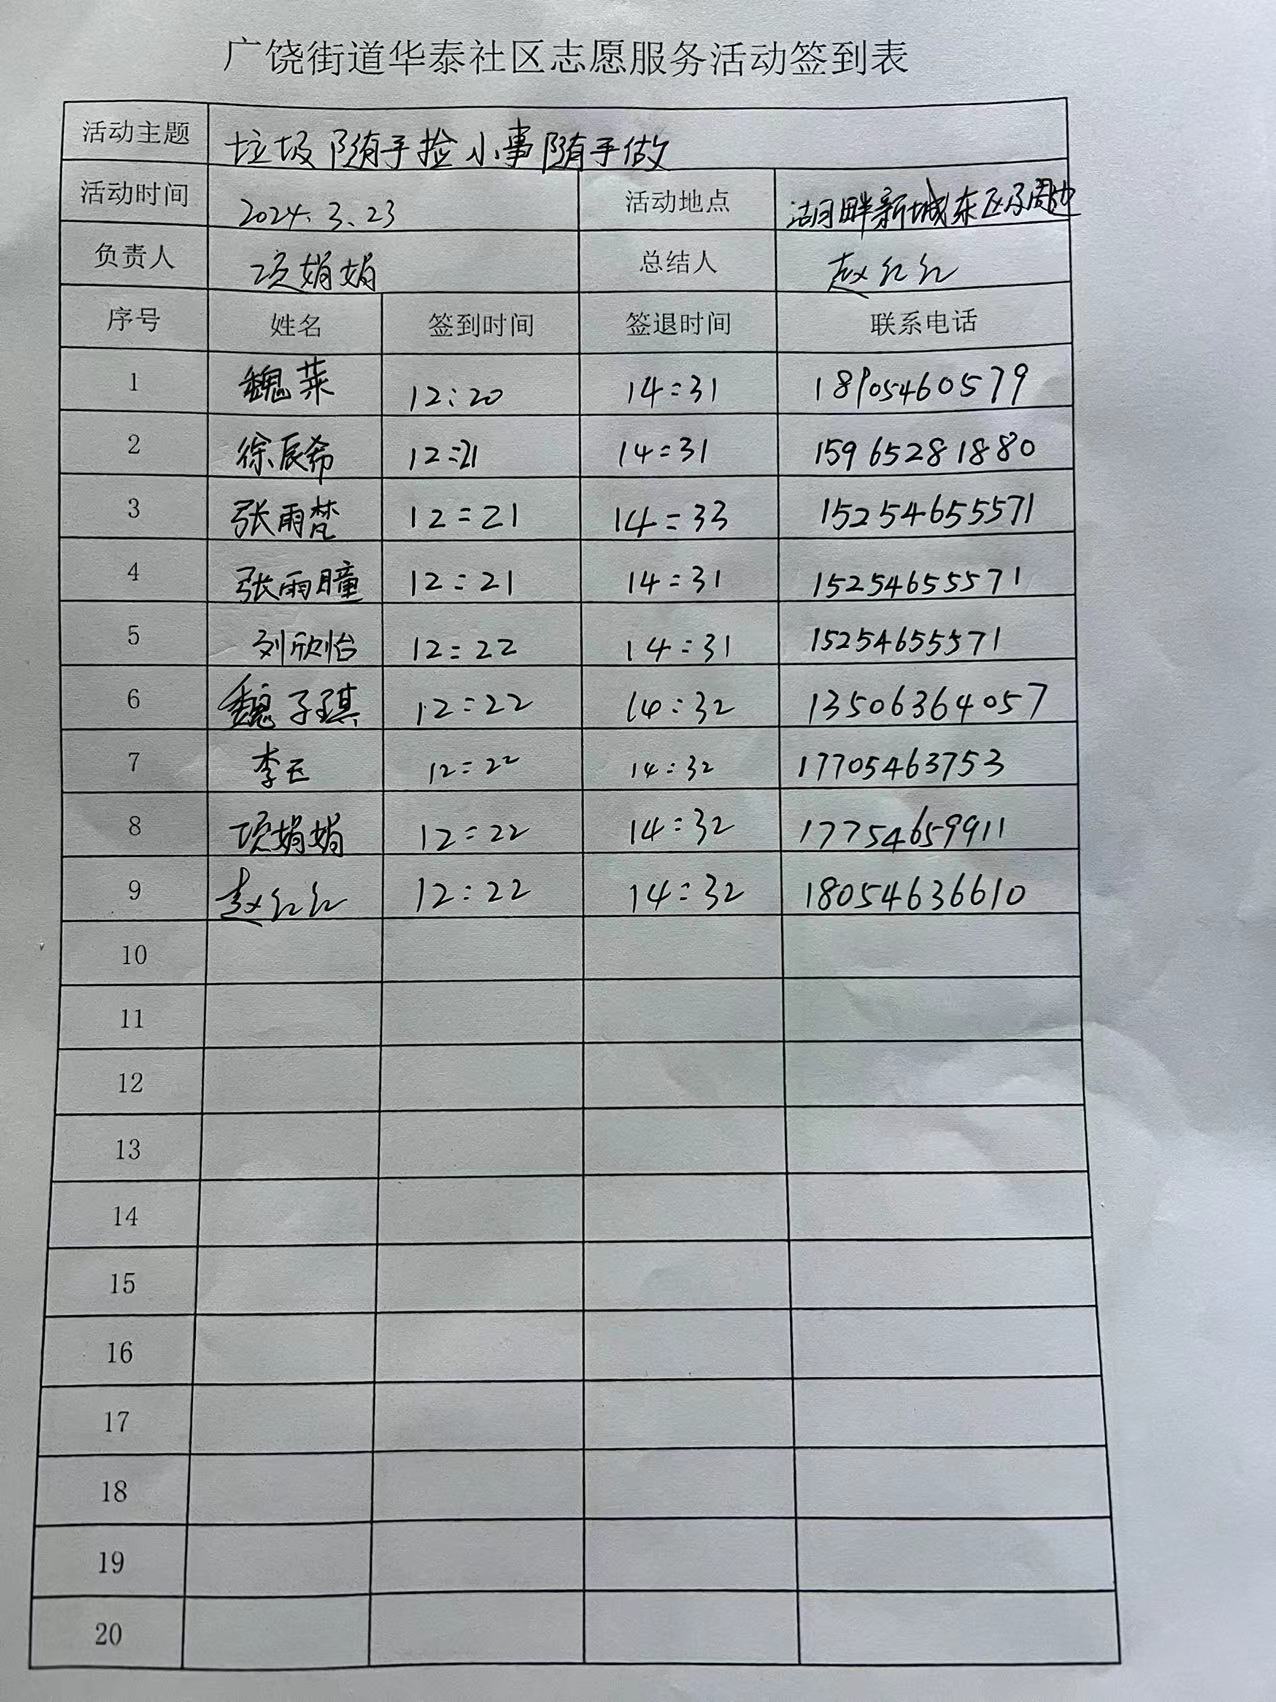 广饶街道华泰社区志愿服务活动签到表
活动主题 垃圾随手捡小事随手做
活动时间 2024.3.23 活动地点 湖畔新城东区及周边
负责人 项娟娟 总结人 赵红红
序号 姓名 签到时间 签退时间 联系电话
1 魏菜 12:20 14:31 18905460579
2 徐辰希 12:21 14:31 15965281880
3 张雨梵 12:21 14:33 15254655571
4 张雨瞳 12:21 14:31 15254655571
5 刘欣怡 12:22 14:31 15254655571
6 魏子琪 12:22 14:32 13506364057
7 李 12:22 14:32 17705463753
8 项娟娟 12:22 14:32 17754659911
9 赵红红 12:22 14:32 18054636610
10
11
12
13
14
15
16
17
18
19
20